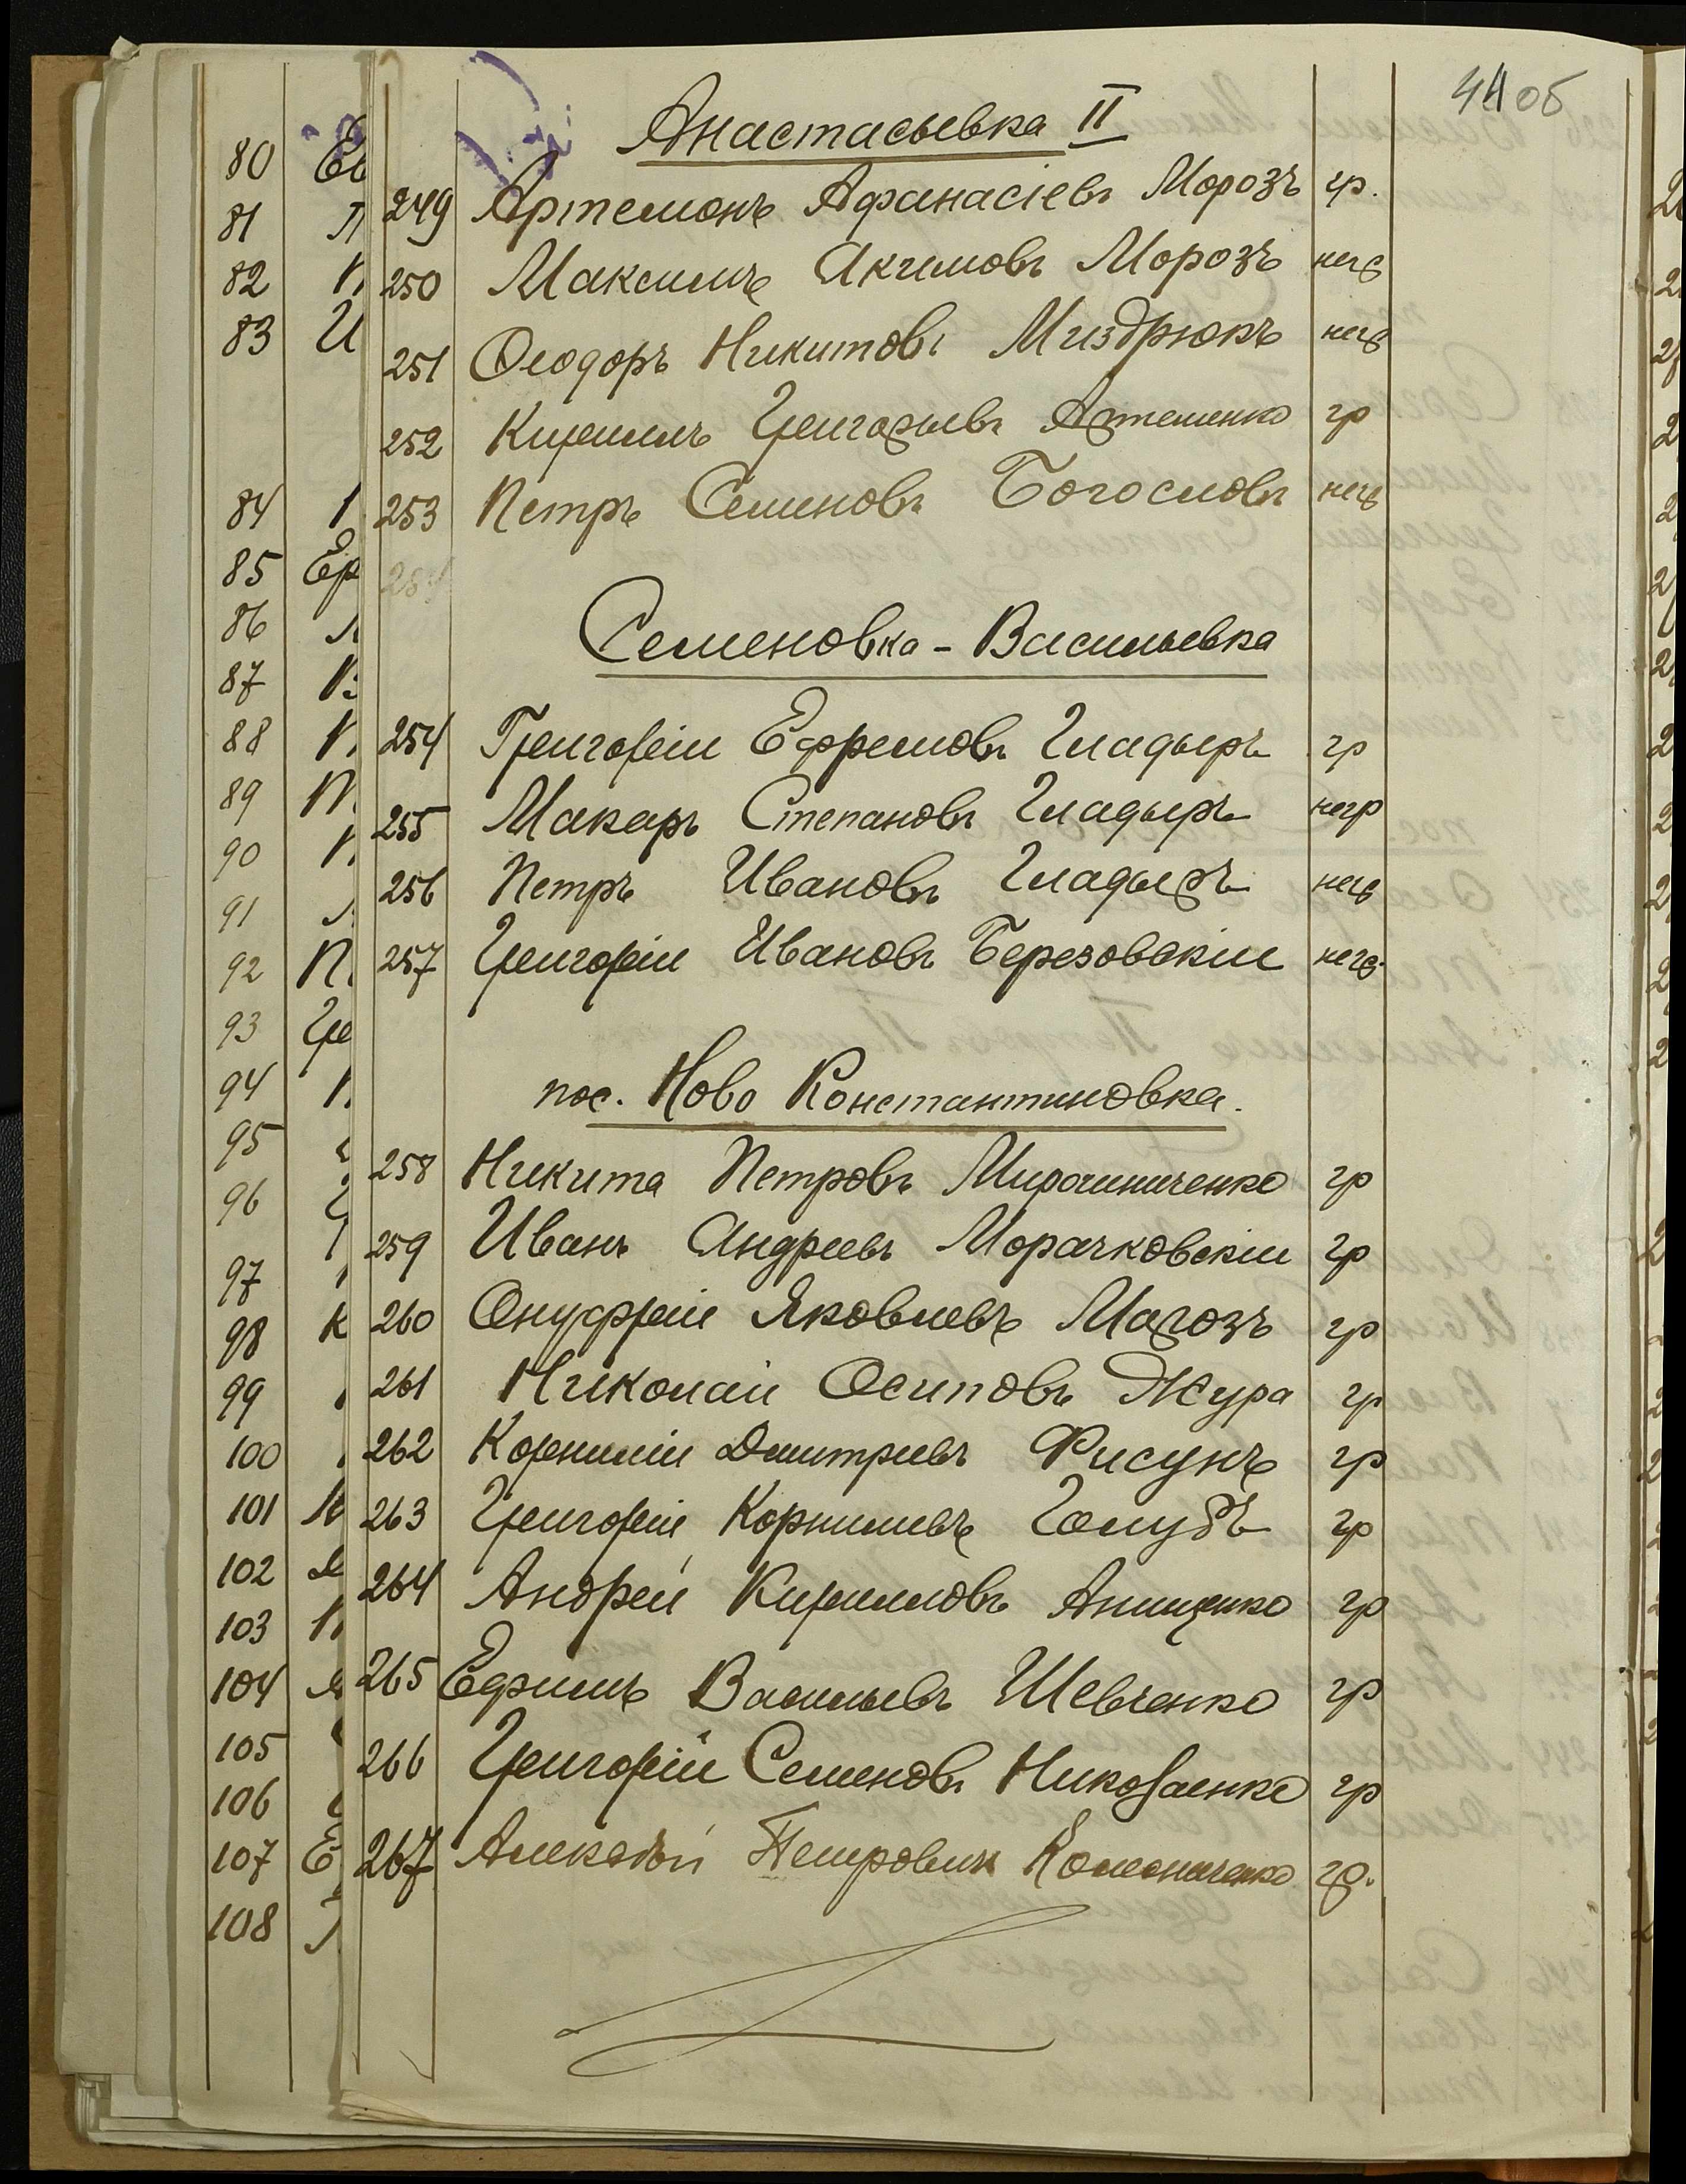 44 об
Анастасьевка II
249 Артемонъ Афанасіевъ Морозъ гр.
250 Максимъ Акимовъ Морозъ негр
251 Ѳеодоръ Никитовъ Миздрюкъ негр
252 Кириллъ Григорьевъ Артеменко гр
253 Петръ Семеновъ Богословъ негр
254
Семеновка - Васильевка
254 Григорій Ефремовъ Гладыръ гр
255 Макаръ Степановъ Гладыръ негр
256 Петръ Ивановъ Гладыръ негр
257 Григорій Ивановъ Березовскій негр.
пос. Ново Константиновка.
258 Никита Петровъ Мирошниченко гр
259 Иванъ Андреевъ Морачковскій гр
260 Онуфрій Яковлевъ Магозъ гр
261 Николай Осиповъ Жура гр
262 Корнилій Дмитріевъ Фисунъ гр
263 Григорій Корнилиевъ Голубъ гр
264 Андрей Кирилловъ Анищенко гр
265 Ефимъ Васильевъ Шевченко гр
266 Григорій Семеновъ Николаенко гр
267 Алексѣй Петровичъ гр.
80
81
82
83
84
85
86
87
88
89
90
91
92
93
94
95
96
97
98
99
100
101
102
103
104
105
106
107
108